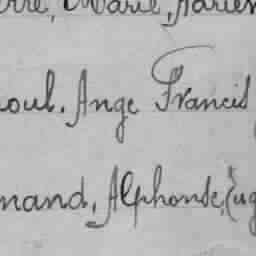 erre, Marie, Adrien
oul. Ange Francis
mand, Alphonse, Eug